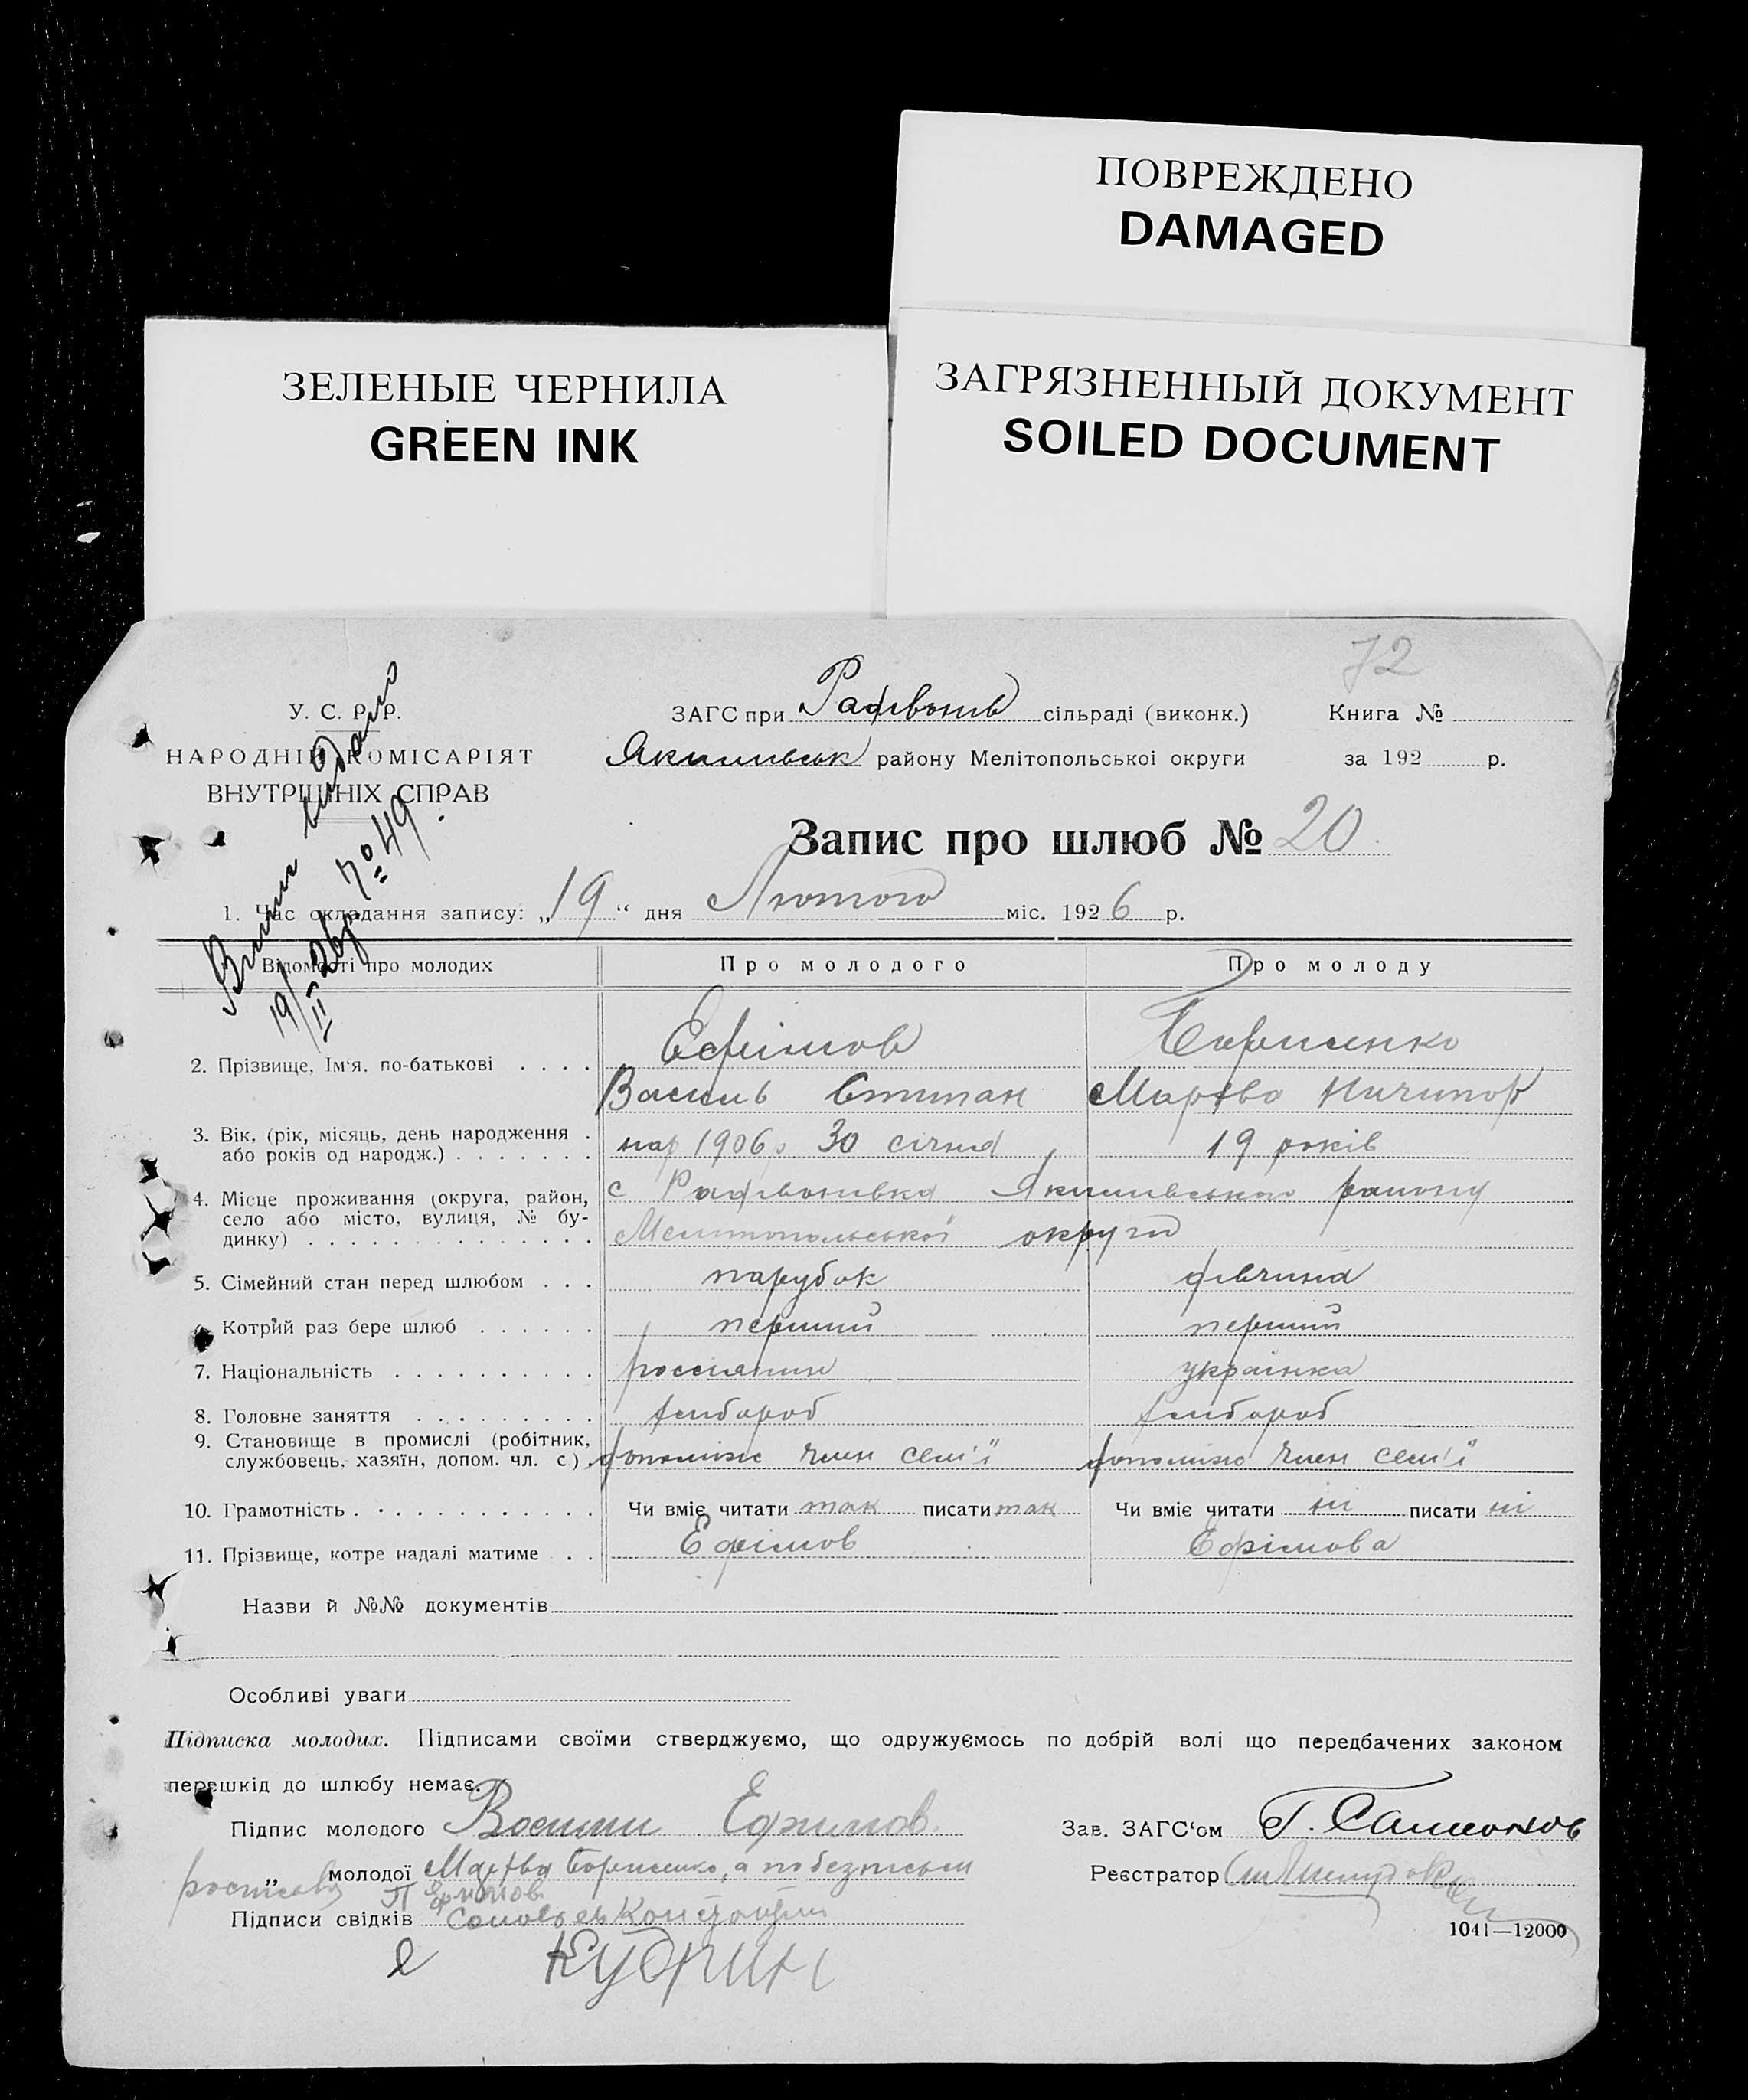 ПОВРЕЖДЕНО
DAMAGED
ЗЕЛЕНЫЕ ЧЕРНИЛА
GREEN INK
ЗАГРЯЗНЕННЫЙ ДОКУМЕНТ
SOILED DOCUMENT
72
У. С. Р. Р.
НАРОДНІЙ КОМІСАРІЯТ
ВНУТРІШНІХ СПРАВ
19/II-26р. № 49.
ЗАГС при сільраді (виконк.)
Якимівськ району Мелітопольської округи
Книга №
за 192 р.
Запис про шлюб № 20.
1. Час складання запису: „19“ дня Лютого міс. 1926 р.
Відомості про молодих Про молодого Про молоду
2. Прізвище, Ім‘я, по-батькові . . . . Ефімов Борисенко
Василь Степан Марфа Ничипор
3. Вік, (рік, місяць, день народження . або років од народж.) . . . . . . . нар 1906 р 30 січня 19 років
4. Місце проживання (округа, район, село або місто, вулиця, № будинку) . . . . . . . . . . . . . с Якимівського району
Мелітопольської округи
5. Сімейний стан перед шлюбом . . . парубок дівчина
Котрий раз бере шлюб . . . . . . перший перший
7. Національність . . . . . . . . . . россиянин українка
8. Головне заняття . . . . . . . . . хлібороб хлібороб
9. Становище в промислі (робітник, службовець, хазяїн, допом. чл. с.) . допоміж член сем'ї допоміж член сем'ї
10. Грамотність . . . . . . . . . . . . Чи вміє читати так писати так Чи вміє читати ні писати ні
11. Прізвище, котре надалі матиме . . Ефімов Ефімова
Назви й №№ документів
Особливі уваги
Підписка молодих. Підписами своїми стверджуємо, що одружуємось по добрій волі що передбачених законом
перешкід до шлюбу немає.
Підпис молодого Ефимов.
Зав. ЗАГС‘ом Г.
„ молодої Марфа Борисенко, а по безписьм
Реєстратор
Підписи свідків
1041—12000
Кудрин